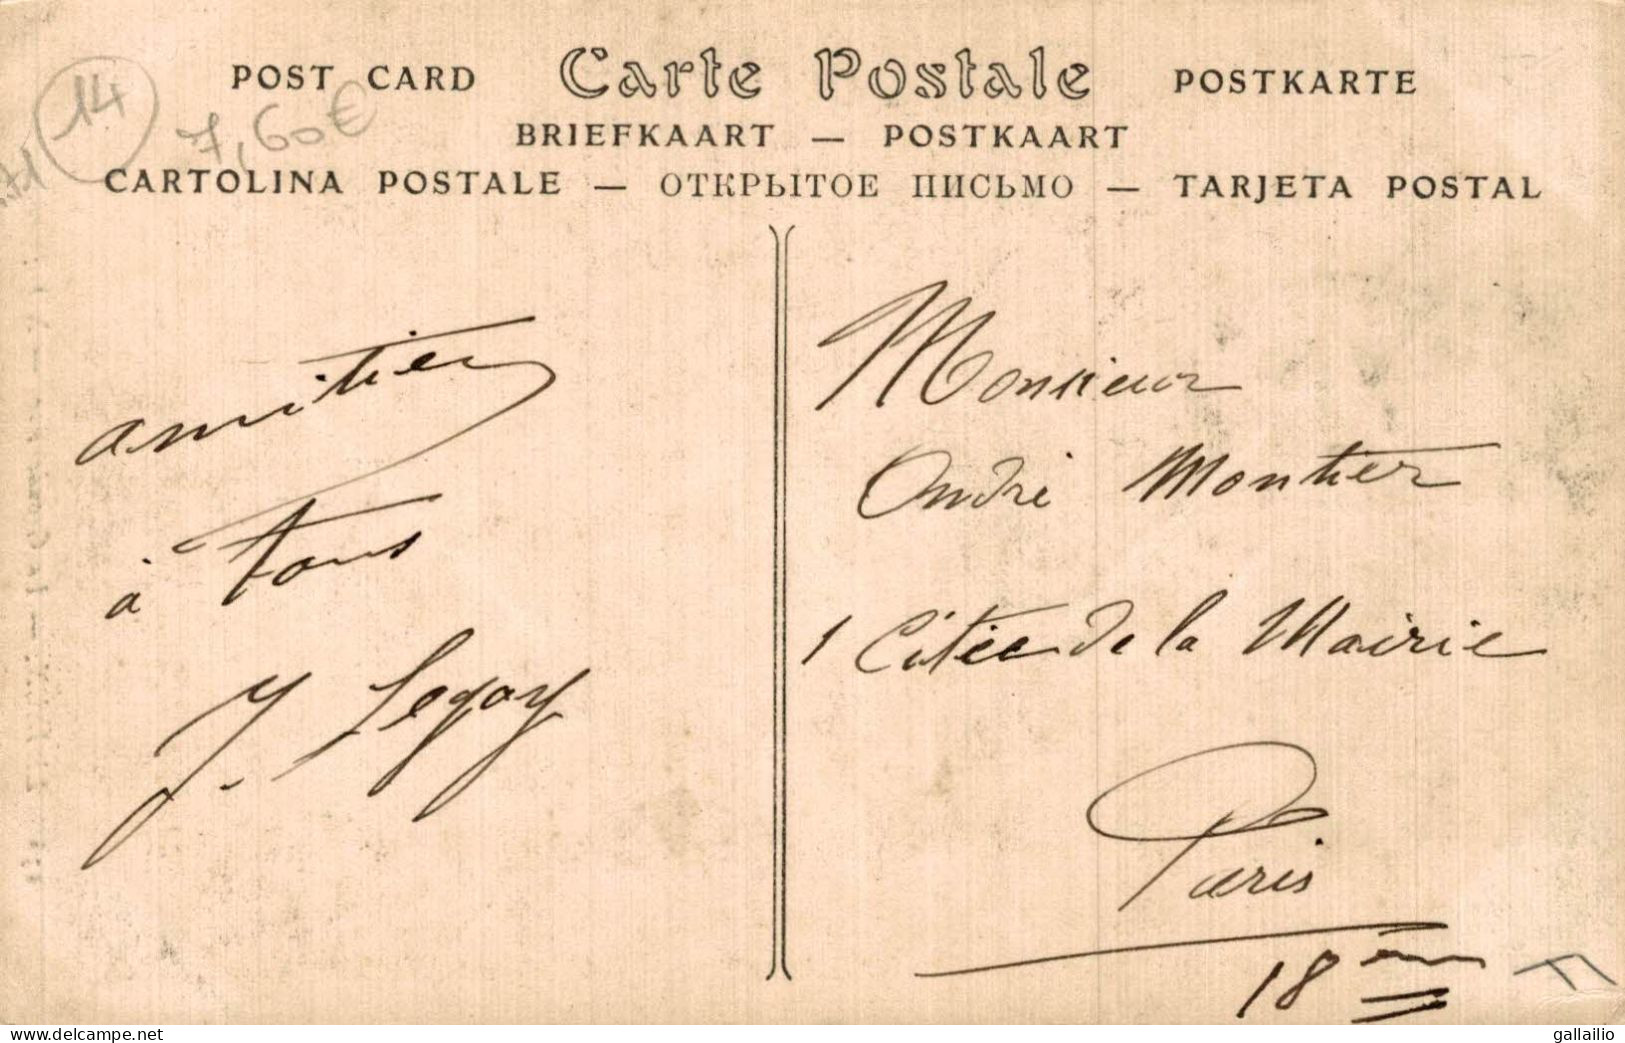 POST CARD Carte Postale POSTKARTE
14
7,60€
BRIEFKAART — POSTKAART
CARTOLINA POSTALE — ОТКРЫТОЕ ПИСЬМО — TARJETA POSTAL
amitier
à tous
J. Legoy
Monsieur
André Montier
1 Citée de la Mairie
Paris
18ème
www.delcampe.net
gallailio